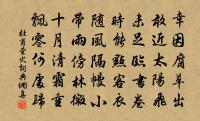 幸因腐草出
敢近太陽飛
未足臨書卷
時能點客衣
随風隔幔小
帶雨傍林微
十月清霜重
飄零何處歸
杜甫螢火詞典網